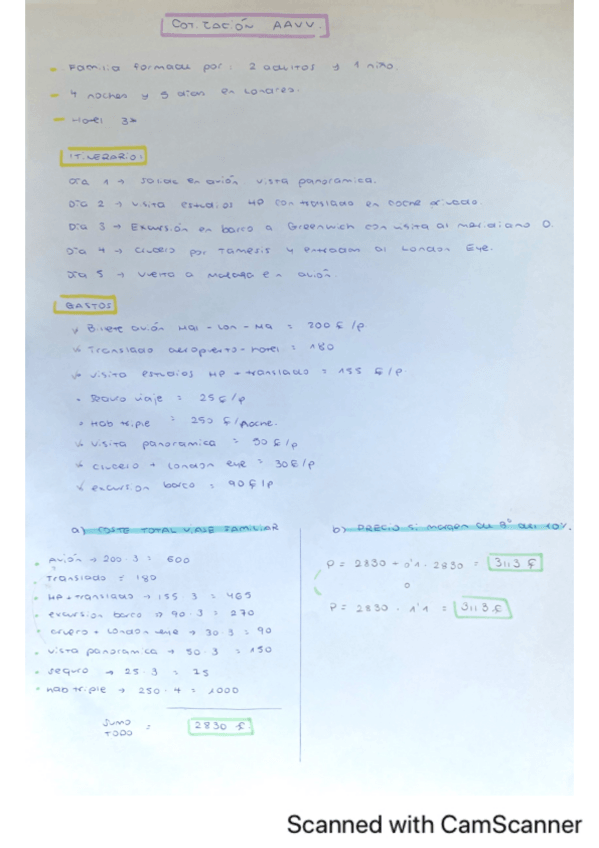 COTIZACIÓN AAVV.
- Familia formada por: 2 adultos y 1 niño.
- 4 noches y 5 dias en Londres.
- Hotel 3*
ITINERARIO:
Día 1 → Salida en avión vista panoramica.
Día 2 → visita estudios HP con traslado en coche privado.
Día 3 → Excursión en barco a Greenwich con visita al meridiano 0.
Día 4 → crucero por Tamesis y entradam al London Eye.
Día 5 → vuelta a Malaga en avión.
GASTOS
Billete avión Mal - Lon - Ma = 200 €/p
Translado aeropuerto-hotel = 180
visita estudios HP + translado = 155 €/p
viaje = 25€/p
Hab triple = 250 €/noche.
visita panoramica = 50 €/p
crucero + London eye = 30€/p
excursion barco = 90€/p
a) COSTE TOTAL VIAJE FAMILIAR
Avión → 200·3 = 600
Translado = 180
HP + translado → 155·3 = 465
excursion barco → 90·3 = 270
crucero + London eye → 30·3 = 90
vista panoramica → 50·3 = 150
seguro → 25·3 = 75
Hab triple → 250·4 = 1000
SUMO TODO = 2830 €
b) PRECIO si margen de Bº del 10%.
P = 2830 + 0'1 · 2830 = 3113 €
o
P = 2830 · 1'1 = 3113 €
Scanned with CamScanner